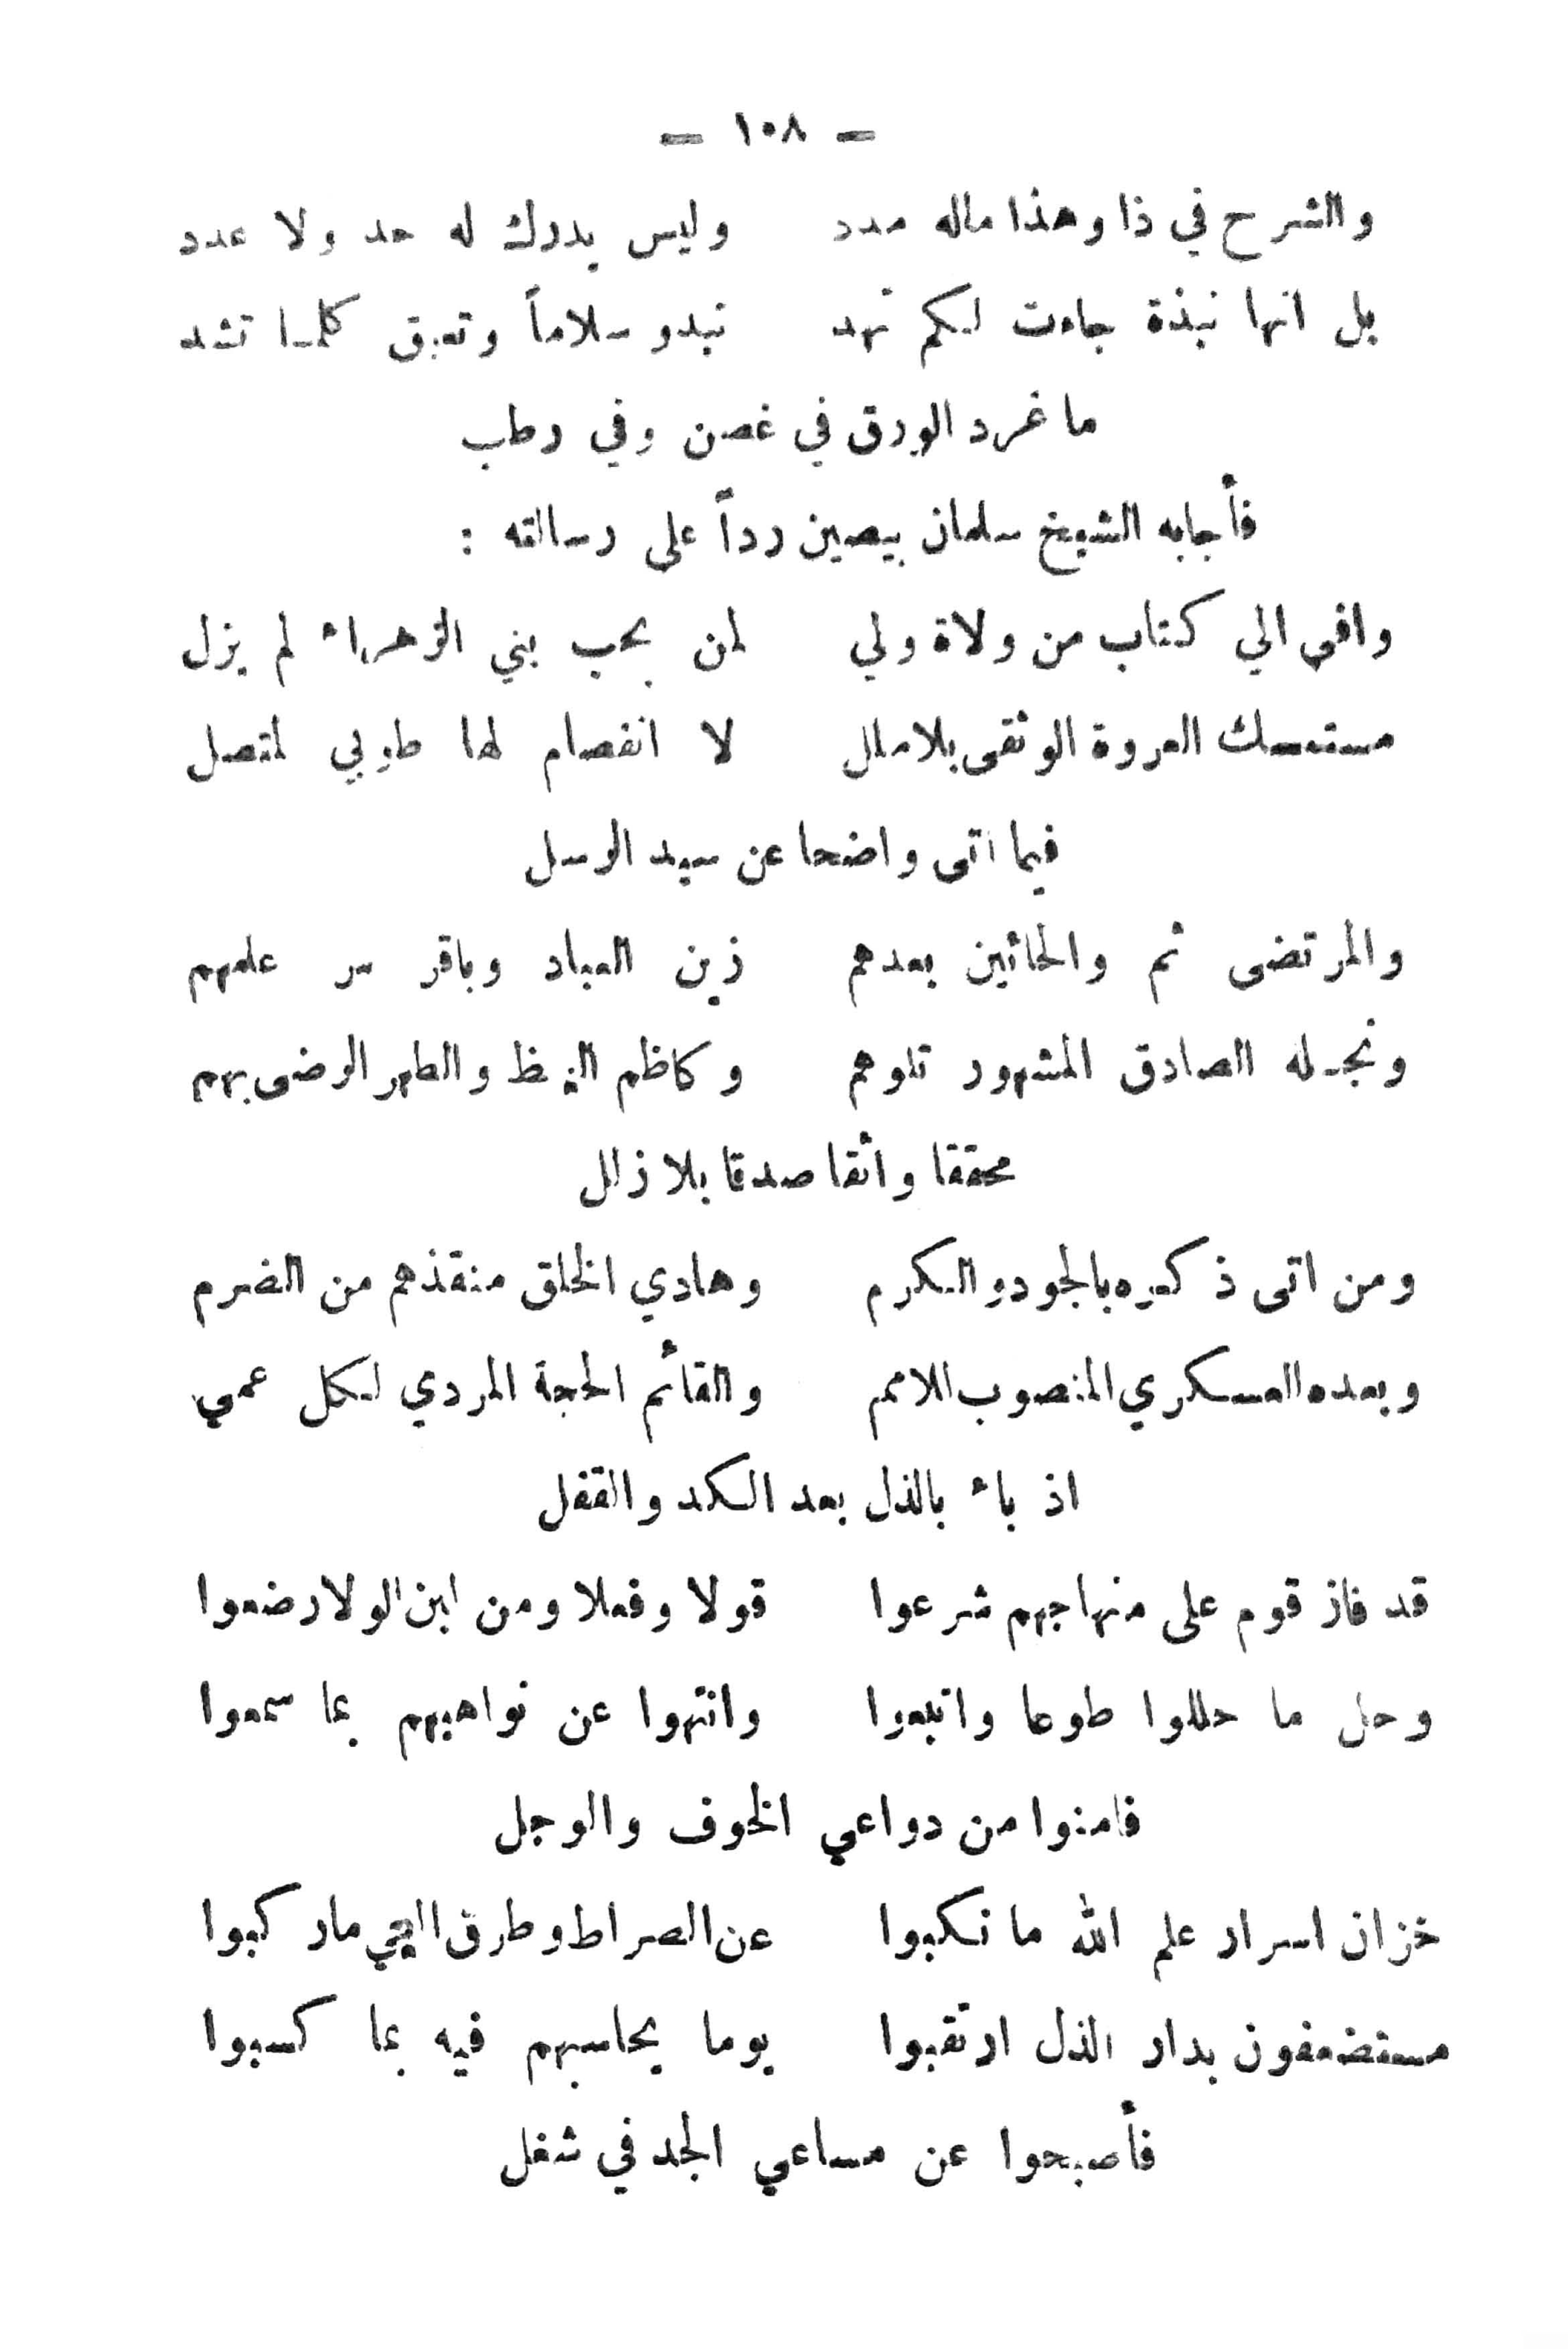 — ١٠٨ —
والشرح في ذا وهذا ماله مدد وليس يدرك له حد ولا عدد
بل انها نبذة جاءت لكم تهد تبدو سلاماً وتعبق كلما تشد
ما غرد الورق في غصن وفي رطب
فأجابه الشيخ سلمان بيصين رداً على رسالته :
وافى الي كتاب من ولاة ولي لمن يحب بني الزهراء لم يزل
مستمسك العروة الوثقى بلا ملل لا انفصام لها طوبي لمتصل
فيما اتى واضحا عن سيد الرسل
والمرتضى ثم والحائين بعدهم زين العباد وباقر سر علمهم
ونجله الصادق المشهور تلوهم وكاظم الغيظ والطهر الرضى بهم
محققا واثقا صدقا بلا زلل
ومن اتى ذكره بالجود والكرم وهادي الخلق منقذهم من الضرم
وبعده العسكري المنصوب للامم والقائم الحجة المردي لكل عمي
اذ باء بالذل بعد الكد والقفل
قد فاز قوم على منهاجهم شرعوا قولا وفعلا ومن لبن الولا رضعوا
وحل ما حللوا طوعا واتبعوا وانتهوا عن نواهيهم بما سمعوا
فامنوا من دواعي الخوف والوجل
خزان اسرار علم الله ما نكبوا عن الصراط وطرق الغي ما ركبوا
مستضعفون بدار الذل ارتقبوا يوما يحاسبهم فيه بما كسبوا
فأصبحوا عن مساعي الجد في شغل